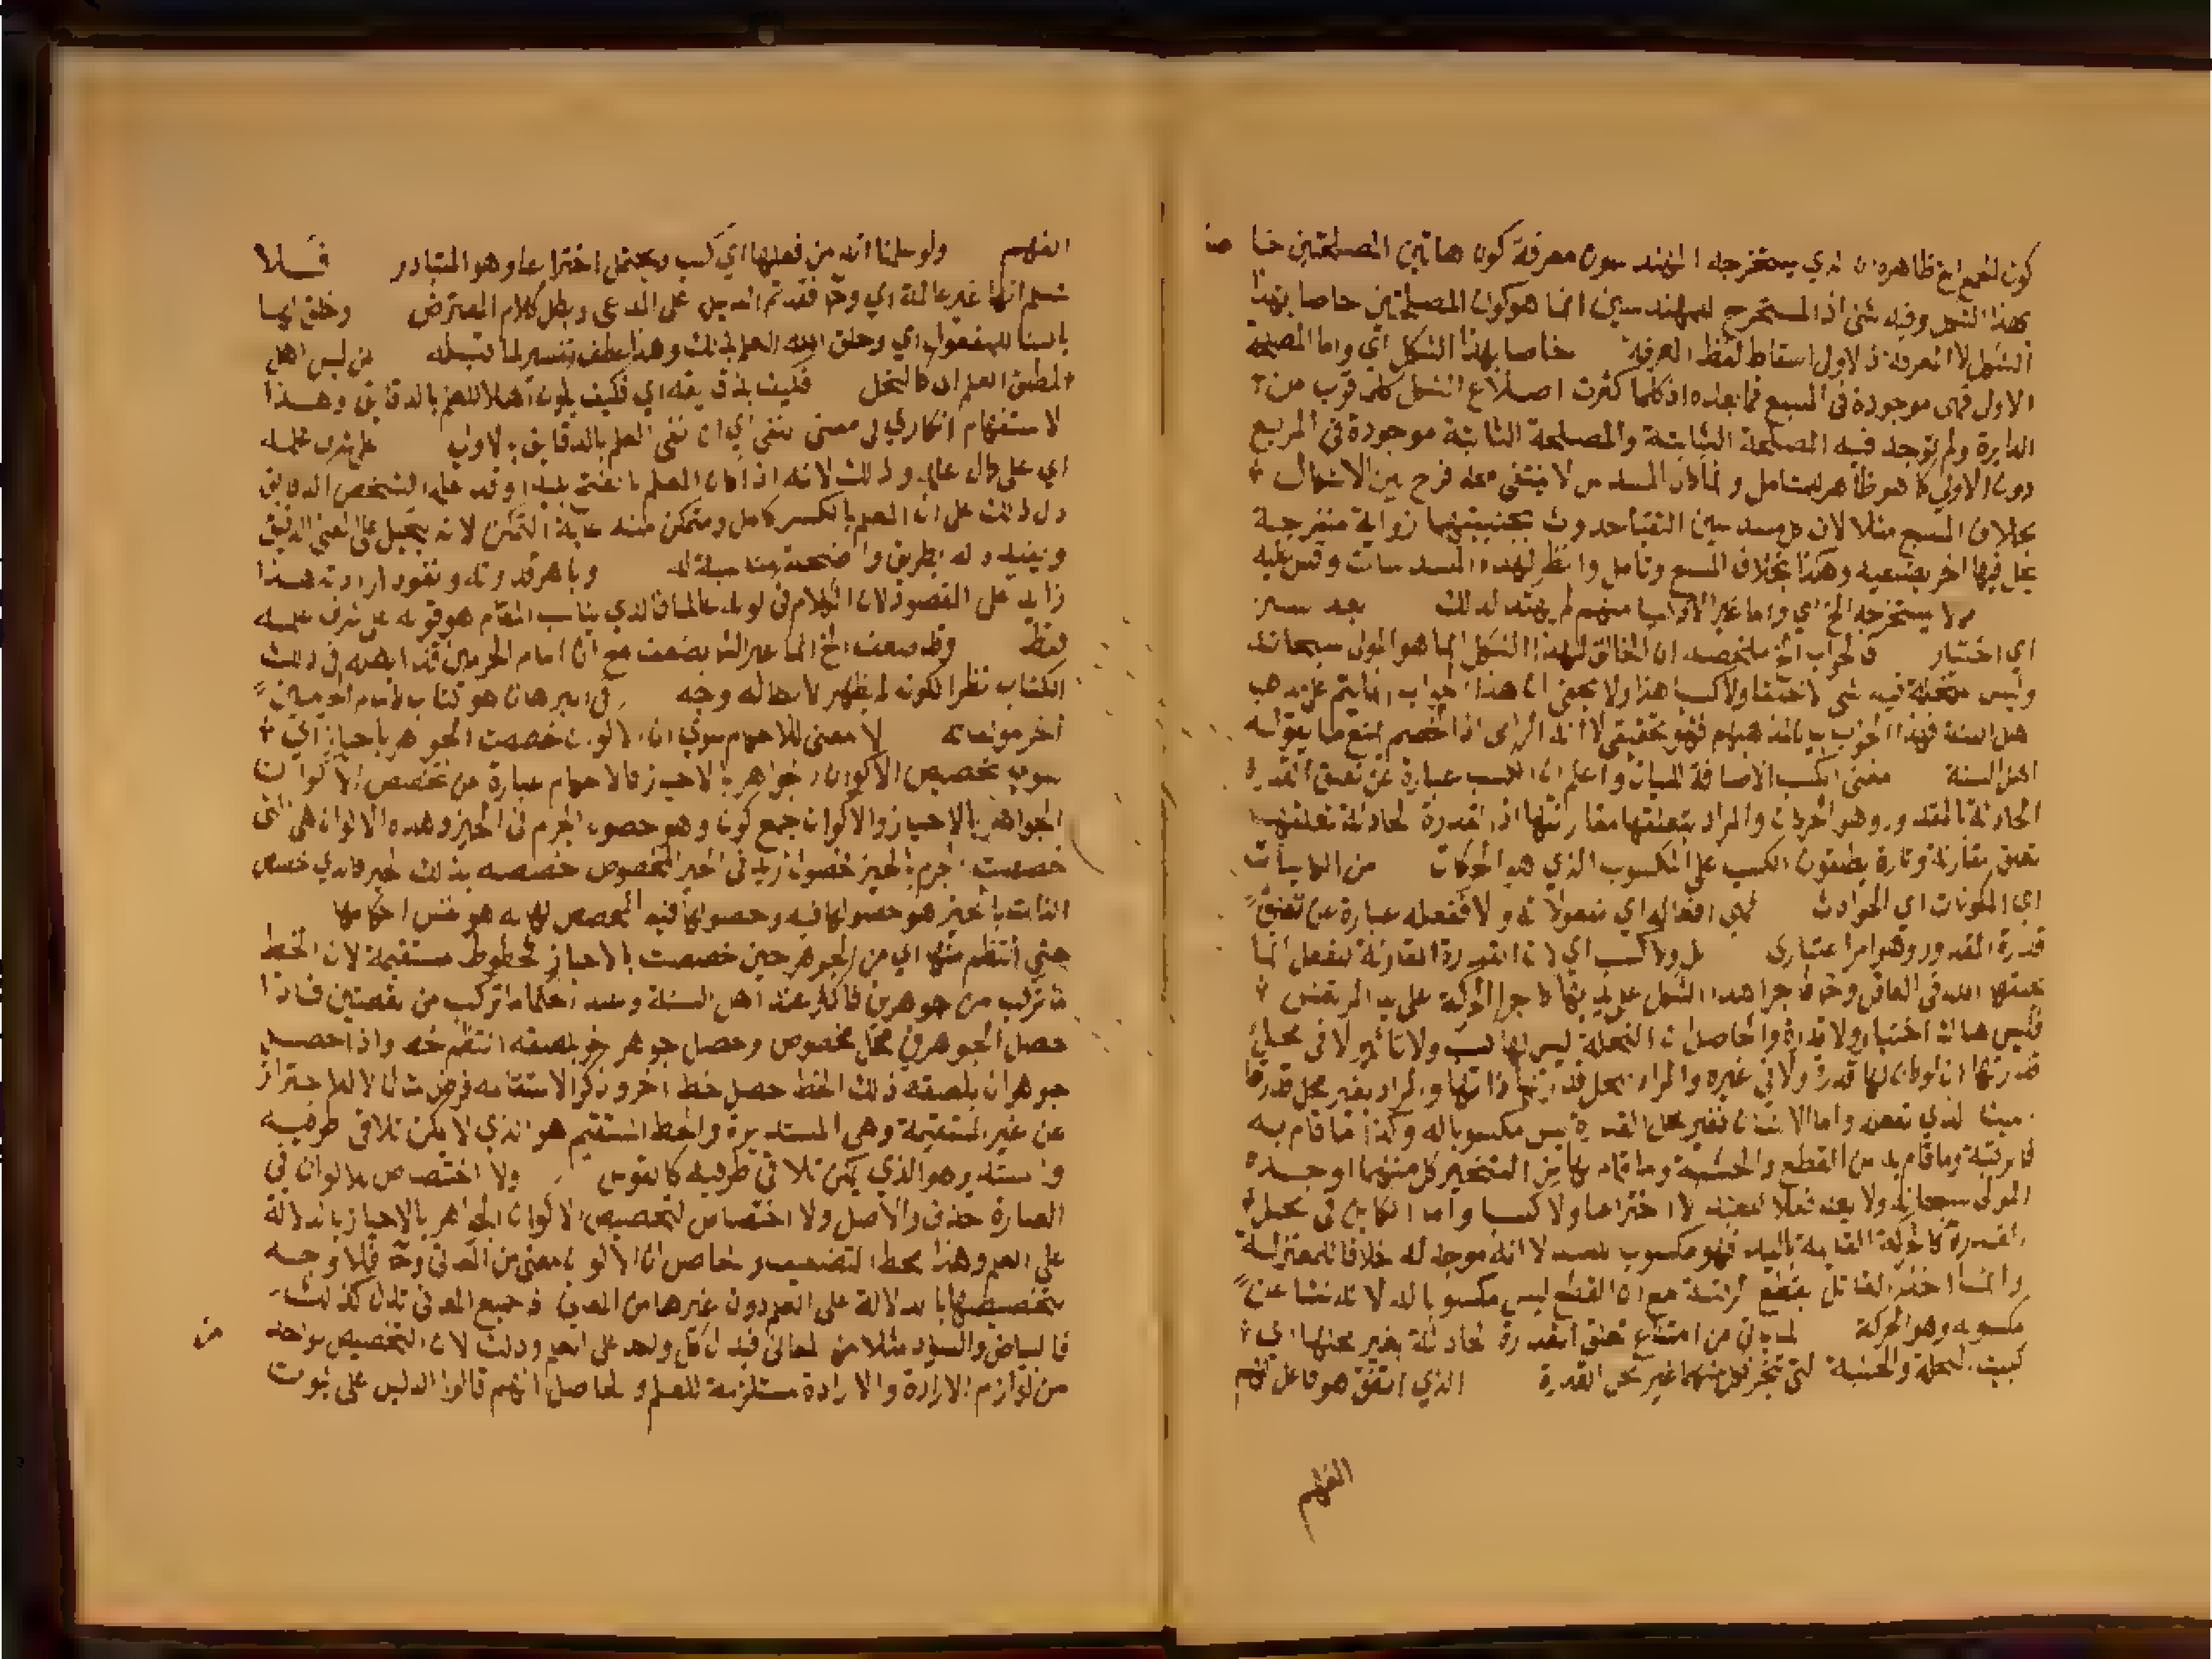 كون الجمع الخ ظاهره ان الذي يستخرجه المهندسون معرفة كون هاتين المصلحتين خاصا
بهذا الشكل وفيه شئ اذ المستخرج للمهندسين انما هو كون المصلحتين خاصا بهذا
الشكل لا المعرفة فالاولى اسقاط لفظ المعرفة خاصا بهذا الشكل اي واما المصلحة
الاولى فهي موجودة في المسبع فما بعده اذ كلما كثرت اضلاع الشكل كلما قرب من
الدايرة ولم توجد فيه المصلحة الثانية والمصلحة الثانية موجودة في المربع
دون الاولى كما هو ظاهر للمتامل وانما كان المسدس لا يبقى معه فرج بين الاشكال
بخلاف المسبع مثلا لان كل مسدسين التقيا حدوث بجنبيهما زواية منفرجة
يحل فيها اخر بضلعيه وهكذا بخلاف المسبع وتامل وانظر لهذه المسدسات وقس عليه
لا يستخرجه الخ اي واما غير الاذكيا منهم لم يهتد لذلك بعد سبر
اي اختبار والجواب الخ ملخصه ان الخالق لهذا الشكل انما هو المولى سبحانه
وليس للنحلة فيه شئ لا خلقا ولا كسبا هذا ولا يخفى ان هذا الجواب انما يتم على مذهب
اهل السنة فهذا الجواب بيان لمذهبهم فهو تحقيقي لا انه الزامي اذ الخصم يمنع ما يقوله
اهل السنة معنى الكسب الاضافة للبيان واعلم ان الكسب عبارة عن تعلق القدرة
الحادثة بالمقدور وهو الحركات والمراد بتعلقها مقارنتها اذ القدرة الحادثة تعلقها
تعلق مقارنة وتارة يطلقون الكسب على المكسوب الذي هو الحركات من الكاينات
اي المكونات اي الحوادث فهي افعاله اي مفعولاته والا ففعله عبارة عن تعلق
قدرة المقدور وهو امر اعتباري بل ولا كسب اي لان القدرة المقارنة للفعل انما
يخلقها الله في العاقل
فليس هناك اختيار ولا قدرة والحاصل ان النحلة ليس لها كسب ولا تاثير لا في محل
قدرتها ان لو كان لها قدرة ولا في غيره والمراد بمحل قدرتها ذاتها والمراد بغير محل قدرتها
المولى سبحانه ولا يعد فعلا للعبد لا اختراعا ولا كسبا واما الكاين في محل
القدرة كالحركة القايمة باليد فهو مكسوب للعبد لا انه موجد له خلافا للمعتزلة
وانما اخذ القاتل بقطع الرقبة مع ان القطع ليس مكسوبا له لانه نشا عن
مكسوبه وهو الحركة لما ياتي من امتناع تعلق القدرة الحادثة بغير محلها اي
كبيت النحلة والخشبة التي تنجر لكل منهما غير محل القدرة الذي اتفق هو فاعل الفهم
الفهم
الفهم ولو سلمنا انه من فعلها اي كسب ويحتمل اختراعا وهو المتبادر فلا
نسلم انها غير عالمة اي وح فقد تم الدليل على المدعى وبطل كلام المعترض وخلق لها
بالبنا للمفعول اي وخلق الله العلم لذلك وهذا عطف تفسير لما قبله من ليس اهل
لمطلق العلم ان كالنحل فكيف بدقيقه اي فكيف يكون اهلا للعلم بالدقايق وهذا
الاستفهام انكاري في معنى النفي اي ان نفى العلم بالدقايق بالاولى على شرف علمه
اي على كمال علمه وذلك لانه اذا كان المعلم بالفتح
دل ذلك على ان المعلم بالكسر كامل ومتمكن منه غاية التمكن لانه يتحيل على المعنى الدقيق
ويفيده له بطريق واضحة مناسبة له وباهر قدرته ونفوذ ارادته هذا
زايد على المقصود لان الكلام في كونه عالما فالذي يناسب المقام هو قوله على شرف علمه
فقط وقد ضعف الخ انما عبر الشارح بضعف مع ان امام الحرمين قد ابطله في ذلك
الكتاب نظرا لكونه لم يظهر لابطاله وجه في البرهان هو كتاب لامام الحرمين
اخر مؤلفاته لا معنى للاحكام سوى ان الاكوان خصصت الجواهر باحياز اي
سوى تخصيص الاكوان الجواهر بالاحياز فالاحكام عبارة عن تخصيص الاكوان
الجواهر بالاحياز والاكوان جمع كون وهو حصول الجرم في الحيز وهذه الاكوان هي التي
خصصت الجرم بالحيز فحصول زيد في الحيز المخصوص خصصه بذلك الحيز فالذي خصص
الذات بالحيز هو حصولها فيه وحصولها فيه المخصص لها به هو نفس احكامها
حتى انتظم منها اي من الجواهر حين خصصت بالاحياز خطوط مستقيمة لان الخط
ما تركب من جوهرين فاكثر عند اهل السنة وعند الحكما ما تركب من نقطتين فاذا
حصل الجوهر في محل مخصوص وحصل جوهر اخر بلصقه انتظم خط واذا حصل
جوهران بلصقه ذلك الخط حصل خط اخر وذكر الاستقامة فرض مثال لا للاحتراز
عن غير المستقيمة وهي المستديرة والخط المستقيم هو الذي لا يمكن تلاقي طرفيه
والمستدير هو الذي يمكن تلاقي طرفيه كالقوس ولا اختصاص للاكوان في
العبارة حذف والاصل ولا اختصاص لتخصيص الاكوان الجواهر بالاحياز بالدلالة
على العلم وهذا محط التضعيف والحاصل ان الاكوان معنى من المعاني وح فلا وجه
لتخصيصها بالدلالة على العلم دون غيرها من المعاني اذ جميع المعاني تدل كذلك
فالبياض والسواد مثلا من المعاني فيدل كل واحد على العلم وذلك لان التخصيص بواحد من
من لوازم الارادة والارادة مستلزمة للعلم والحاصل انهم قالوا الدليل على ثبوت